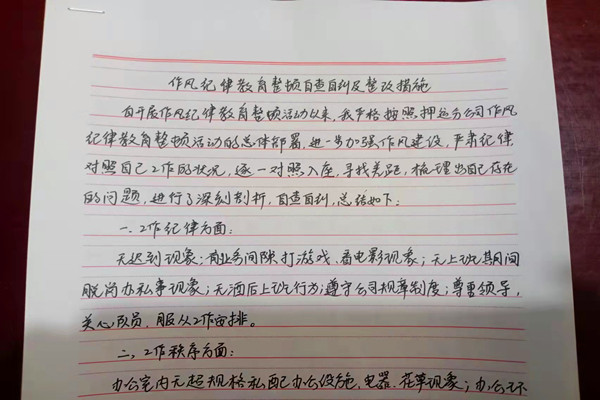 作风纪律教育整顿自查自纠及整改措施
自开展作风纪律教育整顿活动以来,我严格按照押运分公司作风
纪律教育整顿活动的总体部署,进一步加强作风建设,严肃纪律
对照自己工作的状况,逐一对照入座,寻找差距,梳理出自己存在
的问题,进行了深刻剖析,自查自纠,总结如下:
一、工作纪律方面:
无迟到现象;有业务间隙打游戏、看电影现象;无上班期间
脱岗办私事现象;无酒后上班行为;遵守公司规章制度;尊重领导,
关心队员,服从工作安排。
二、工作秩序方面:
办公室内无超规格私配办公设施、电器、花草现象;办公环